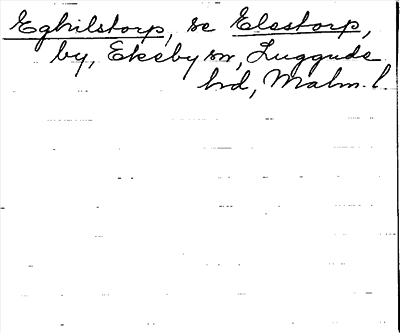 Eghilstorp, se Elestorp,
by, Ekeby sn, Luggude
hd, Malm. l.